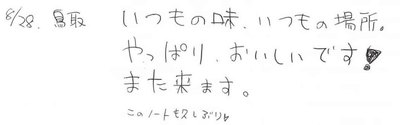 8/28. 鳥取 いつもの味、いつもの場所。
やっぱり、おいしいです!
また来ます。
このノートも久しぶり♥